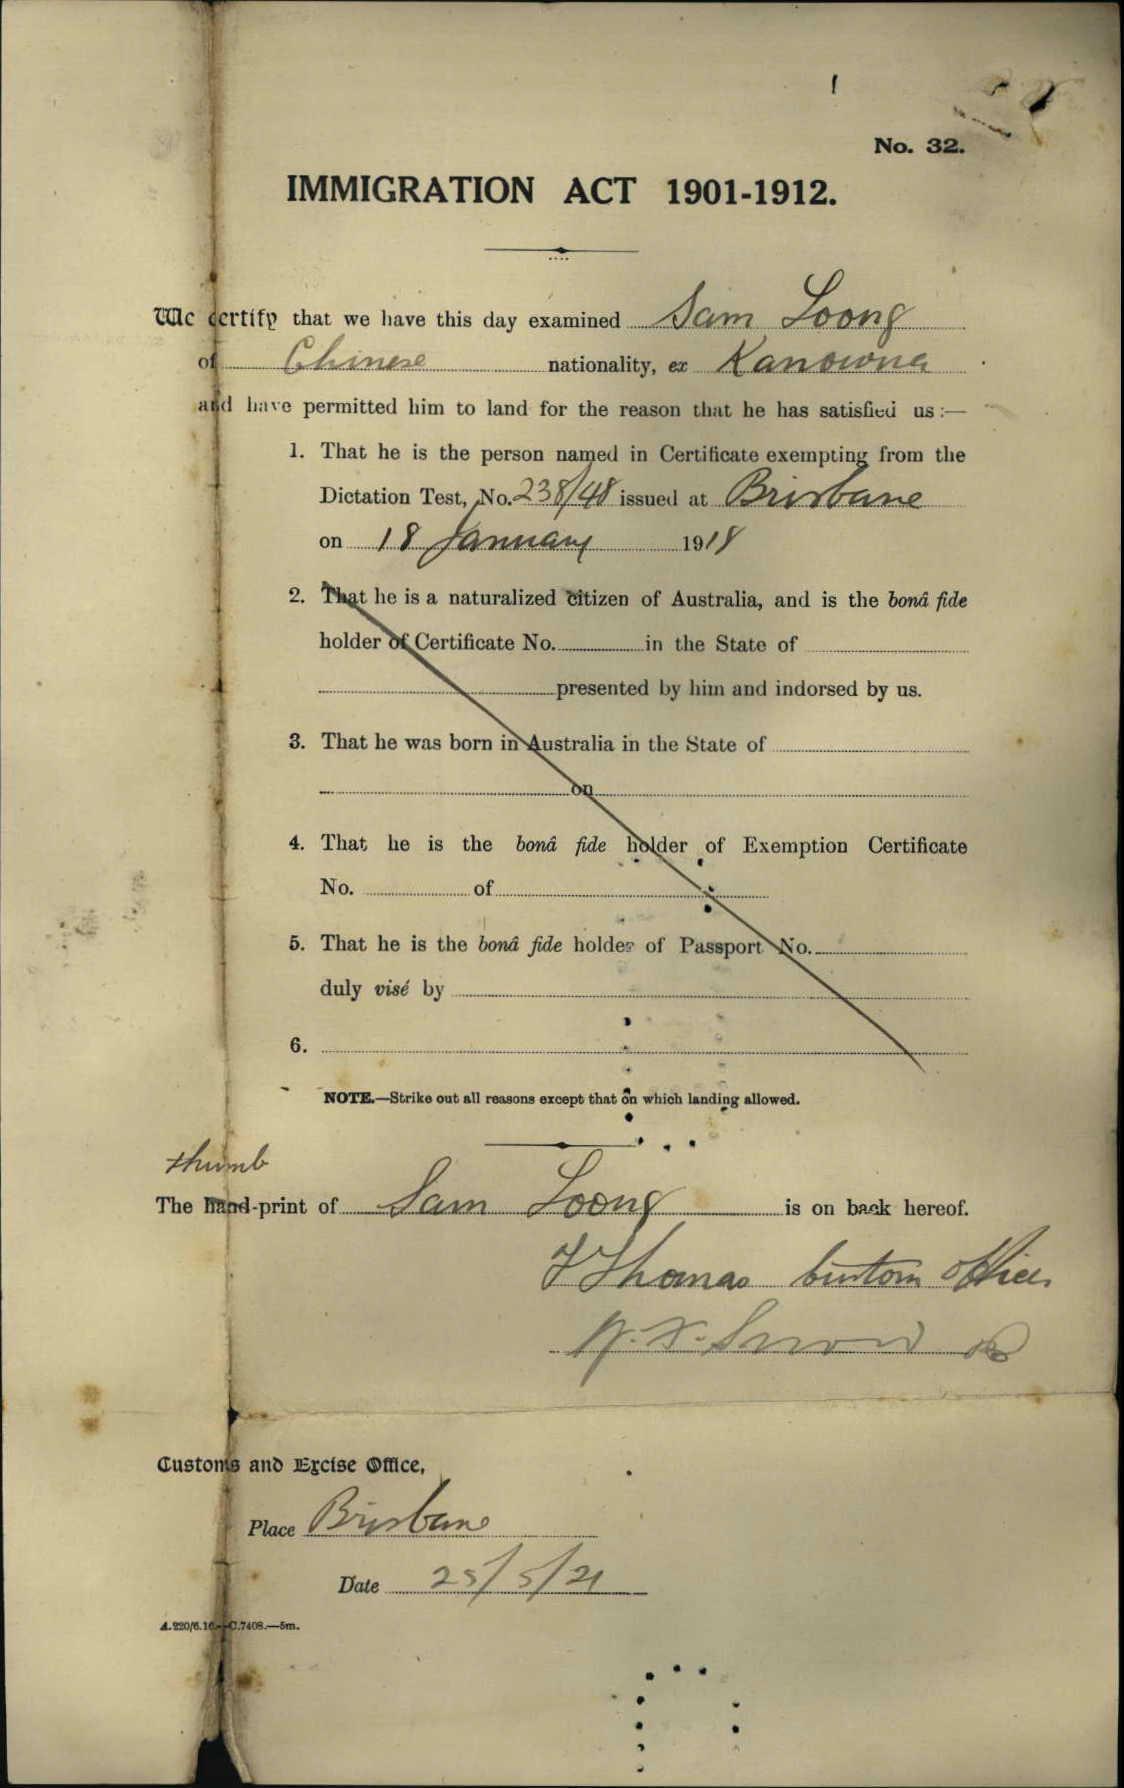 No. 32.
IMMIGRATION ACT 1901-1912.
We certify that we have this day examined Sam Loong
of Chinese nationality, ex Kanowna
and have permitted him to land for the reason that he has satisfied us:—
1. That he is the person named in Certificate exempting from the
Dictation Test, No. 238/48 issued at Brisbane
on 18 January 1918
2. That he is a naturalized citizen of Australia, and is the bonâ fide
holder of Certificate No. in the State of
presented by him and indorsed by us.
3. That he was born in Australia in the State of
on
4. That he is the bonâ fide holder of Exemption Certificate
No. of
5. That he is the bonâ fide holder of Passport No.
duly visé by
6.
NOTE.—Strike out all reasons except that on which landing allowed.
thumb
The hand-print of Sam Loong is on back hereof.
F Thomas Custom Officer
Snow
Customs and Excise Office,
Place Brisbane
Date 25/5/21
A.220/6.16.—C.7408.—5m.